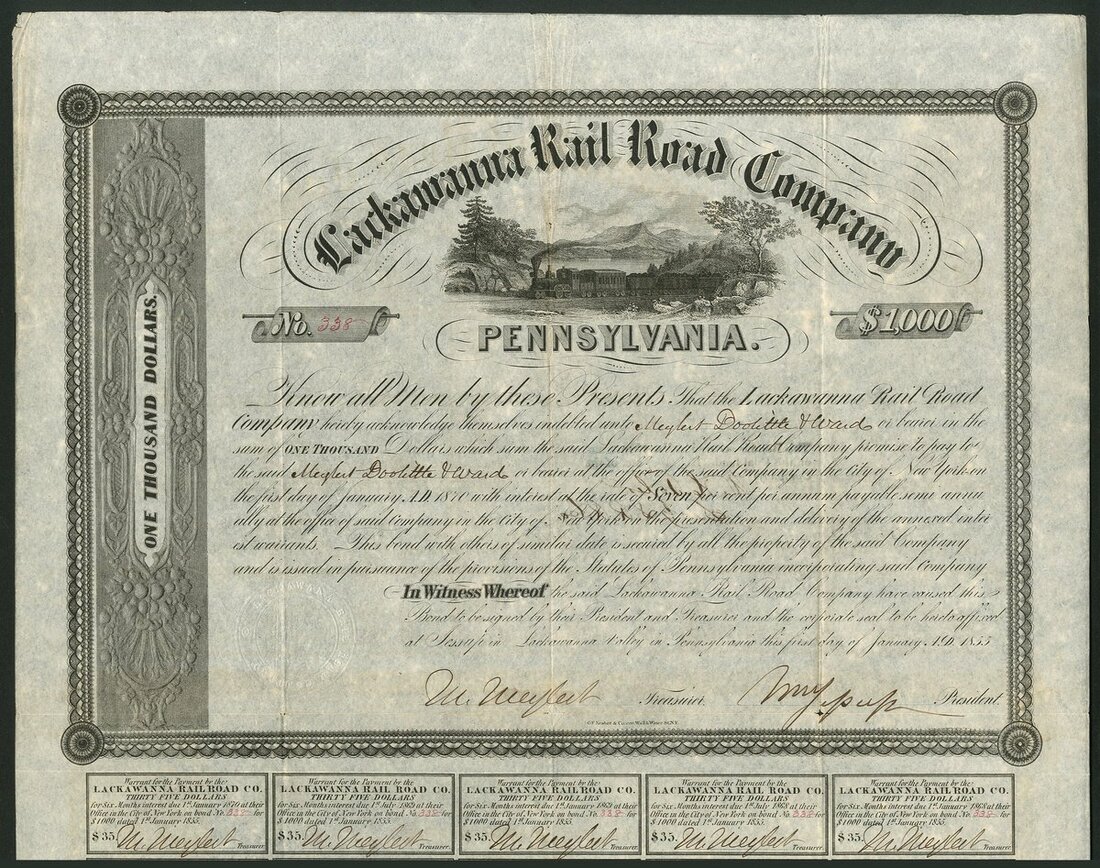 Lackawanna Rail Road Company
No. 338
$1,000
PENNSYLVANIA.
ONE THOUSAND DOLLARS.
Know all Men by these Presents That the Lackawanna Rail Road
Company hereby acknowledge themselves indebted unto Meylert Doolittle & Ward or bearer in the
sum of ONE THOUSAND Dollars which sum the said Lackawanna Rail Road Company promise to pay to
the said Meylert Doolittle & Ward or bearer at the office of the said Company in the City of New York on
the first day of January A.D. 1870 with interest at the rate of Seven per cent per annum payable semi annu
ally at the office of said Company in the City of New York on the presentation and delivery of the annexed inter
est warrants. This bond with others of similar date is secured by all the property of the said Company
and is issued in pursuance of the provisions of the Statutes of Pennsylvania incorporating said Company
In Witness Whereof the said Lackawanna Rail Road Company have caused this
Bond to be signed by their President and Treasurer and the corporate seal to be hereto affixed
at Jessup in Lackawanna Valley in Pennsylvania this first day of January A.D. 1855
M. Meylert Treasurer. Wm Jessup President.
Warrant for the Payment by the
LACKAWANNA RAIL ROAD CO.
THIRTY FIVE DOLLARS
for Six Months interest due 1st January 1870 at their
Office in the City of New York on bond No. 338 for
$1000 dated 1st January 1855.
$35. M. Meylert Treasurer.
Warrant for the Payment by the
LACKAWANNA RAIL ROAD CO.
THIRTY FIVE DOLLARS
for Six Months interest due 1st July 1869 at their
Office in the City of New York on bond No. 338 for
$1000 dated 1st January 1855.
$35. M. Meylert Treasurer.
Warrant for the Payment by the
LACKAWANNA RAIL ROAD CO.
THIRTY FIVE DOLLARS
for Six Months interest due 1st January 1869 at their
Office in the City of New York on bond No. 338 for
$1000 dated 1st January 1855.
$35. M. Meylert Treasurer.
Warrant for the Payment by the
LACKAWANNA RAIL ROAD CO.
THIRTY FIVE DOLLARS
for Six Months interest due 1st July 1868 at their
Office in the City of New York on bond No. 338 for
$1000 dated 1st January 1855.
$35. M. Meylert Treasurer.
Warrant for the Payment by the
LACKAWANNA RAIL ROAD CO.
THIRTY FIVE DOLLARS
for Six Months interest due 1st January 1868 at their
Office in the City of New York on bond No. 338 for
$1000 dated 1st January 1855.
$35. M. Meylert Treasurer.